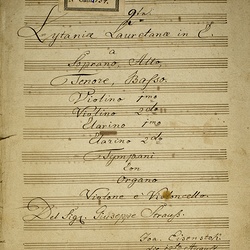 Lytaniæ Lauretanæ in C.
a
Soprano, Alto,
Tenore, Basso.
Violino 1mo
Violino 2do
Clarino 1mo
Clarino 2do
Tympani
Con
Organo
Violone e Violoncello.
Del Sigr. Giuseppe Strauss.
Joa. Eisenstok